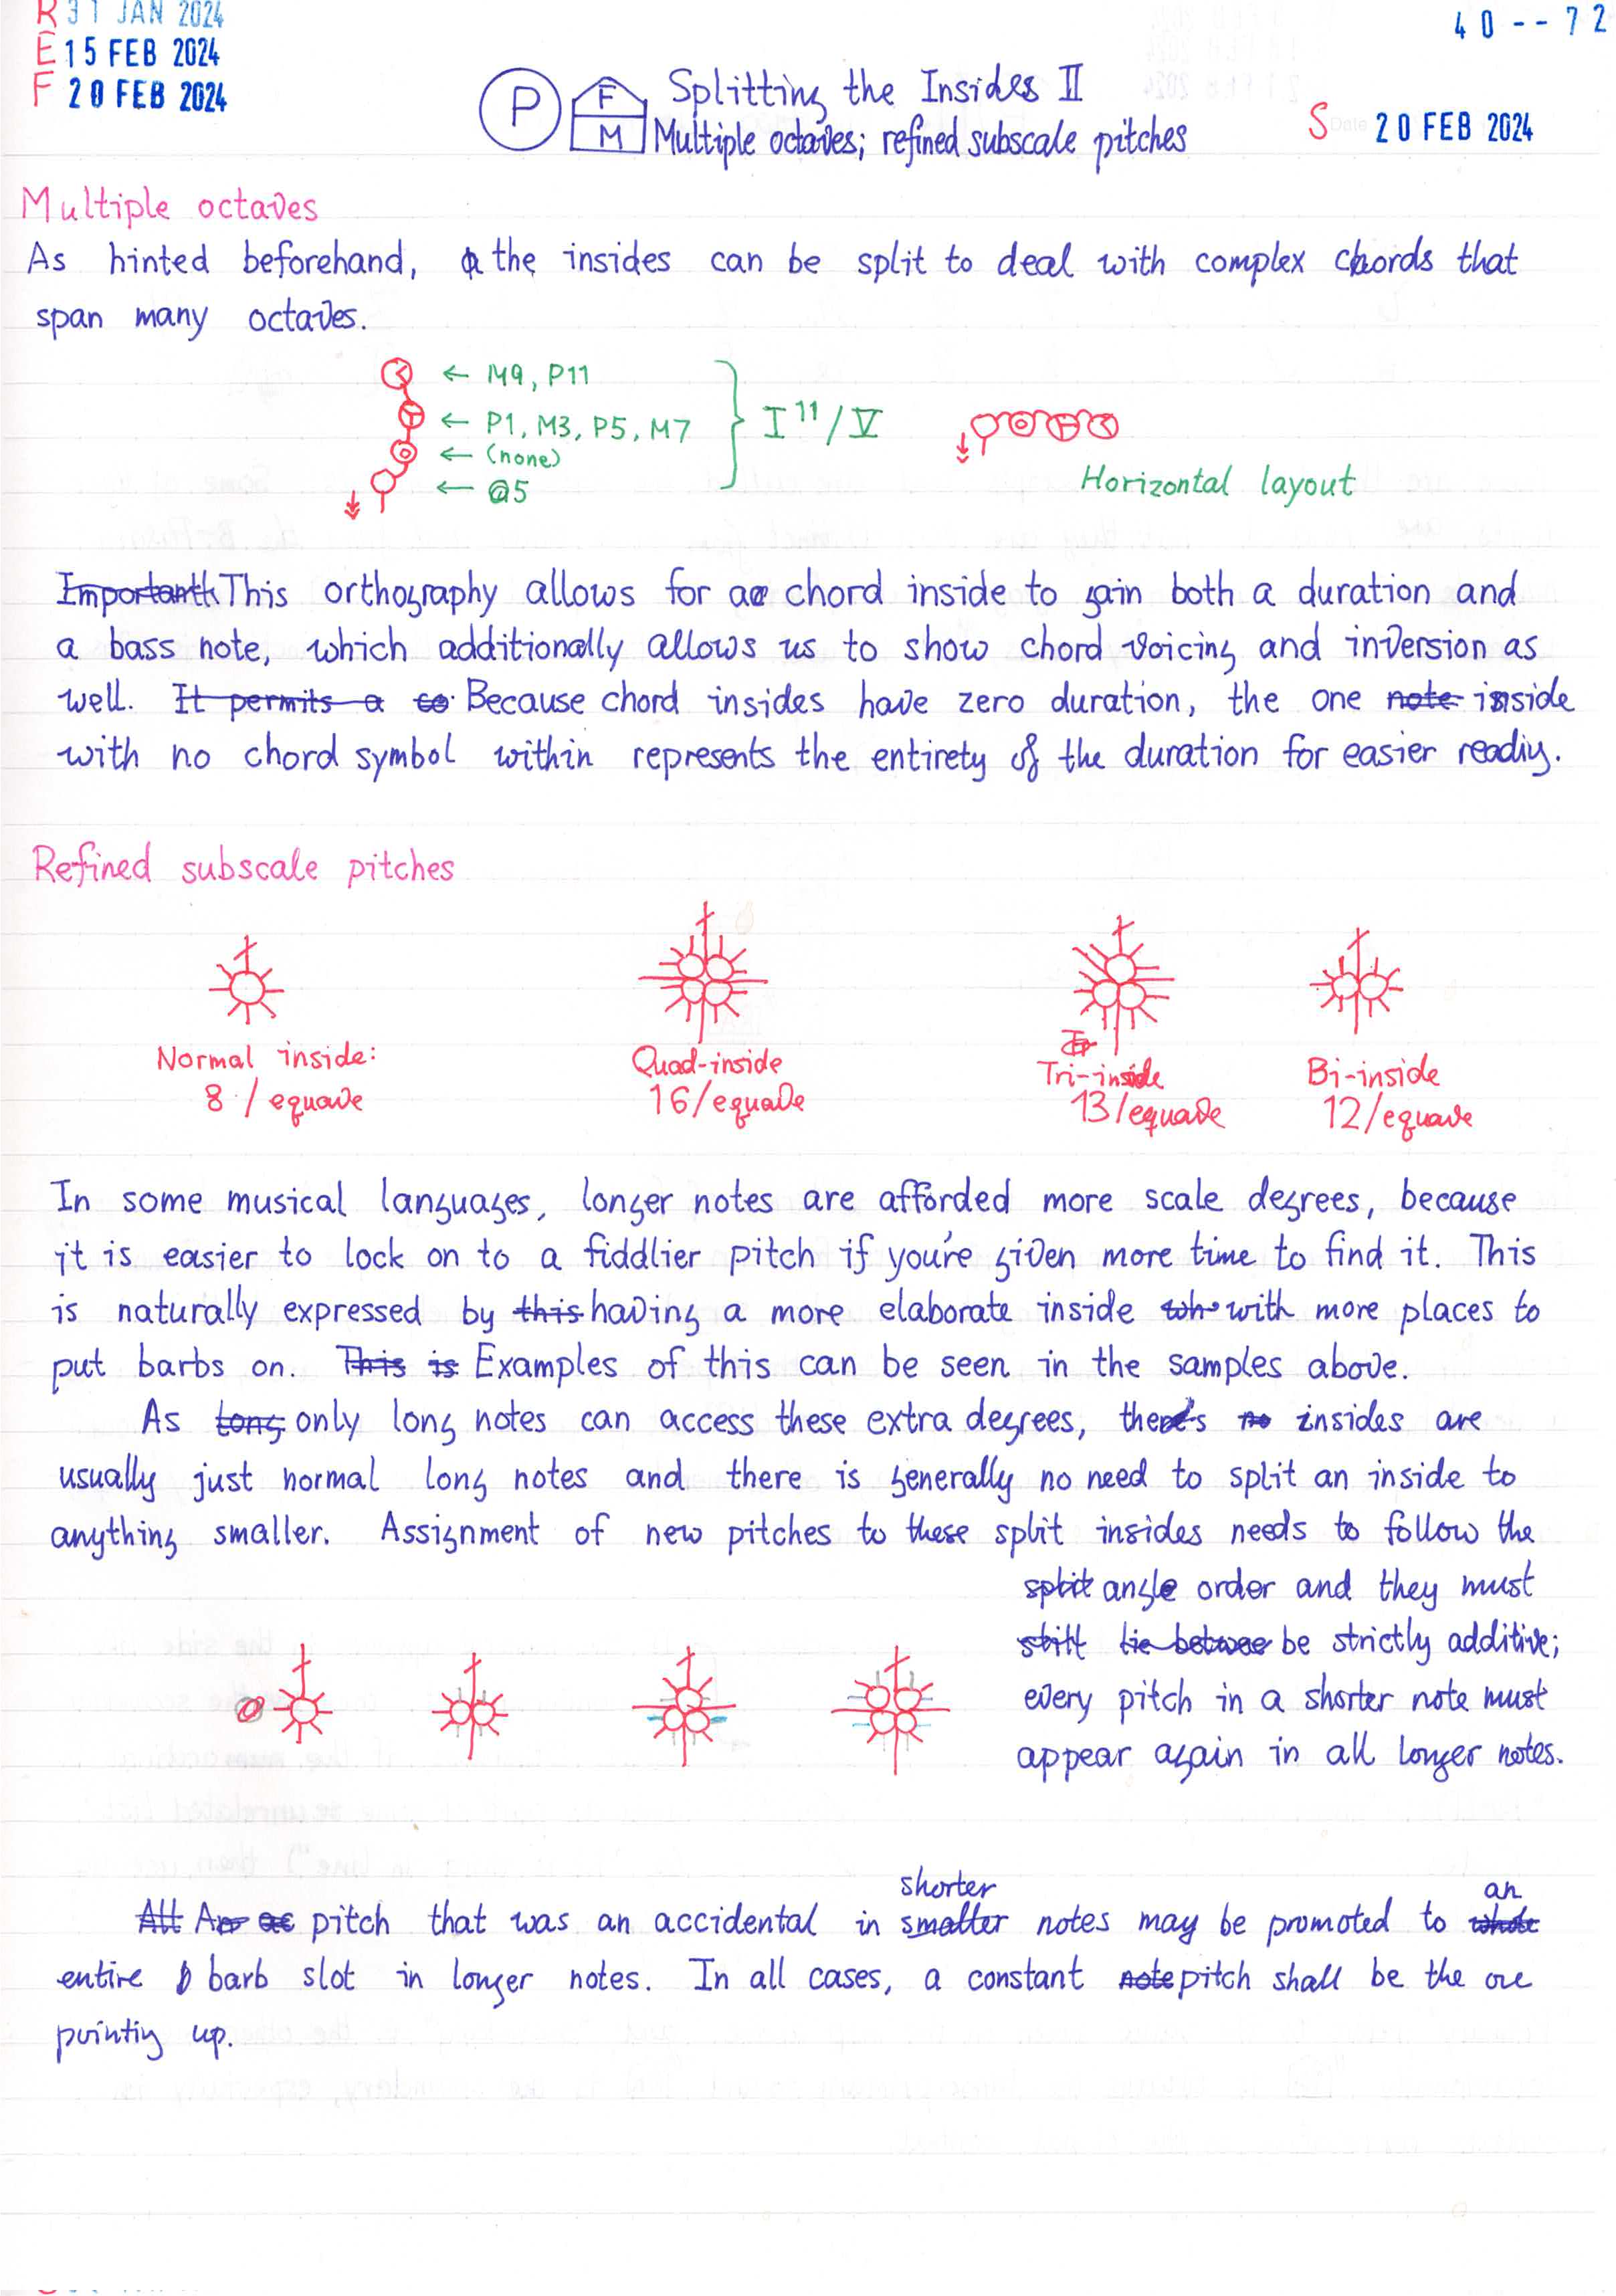 R 31 JAN 2024
E 15 FEB 2024
F 20 FEB 2024
40--72
P F M Splitting the Insides II
Multiple octaves; refined subscale pitches
S Date 20 FEB 2024
Multiple octaves
As hinted beforehand, the insides can be split to deal with complex chords that
span many octaves.
← M9, P11
← P1, M3, P5, M7
← (none)
← @5
I¹¹/V
Horizontal layout
Important This orthography allows for a chord inside to gain both a duration and
a bass note, which additionally allows us to show chord voicing and inversion as
well. It permits a co Because chord insides have zero duration, the one note inside
with no chord symbol within represents the entirety of the duration for easier readig.
Refined subscale pitches
Normal inside:
8 / equave
Quad-inside
16/equave
Tri-inside
13/equave
Bi-inside
12/equave
In some musical languages, longer notes are afforded more scale degrees, because
it is easier to lock on to a fiddlier pitch if you're given more time to find it. This
is naturally expressed by this having a more elaborate inside who with more places to
put barbs on. This is Examples of this can be seen in the samples above.
As long only long notes can access these extra degrees, no insides are
usually just normal long notes and there is generally no need to split an inside to
anything smaller. Assignment of new pitches to these split insides needs to follow the
split angle order and they must
still lie betwee be strictly additive;
every pitch in a shorter note must
appear again in all longer notes.
All A pitch that was an accidental in smaller shorter notes may be promoted to whole an
entire barb slot in longer notes. In all cases, a constant note pitch shall be the oe
pointig up.